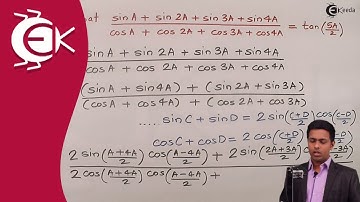 Ekeeda
EK
hat sinA + sin 2A + sin3A + sin4A / cosA + cos 2A + cos3A + cos4A = tan(5A/2)
sinA + sin 2A + sin3A + sin4A / cosA + cos 2A + cos3A + cos4A
(sinA + sin4A) + (sin 2A + sin3A) / (cosA + cos4A) + (cos 2A + cos3A)
..... sinC + sinD = 2 sin(C+D/2) cos(C-D/2)
cosC + cosD = 2 cos(C+D/2) cos(C-D/2)
2 sin(A+4A/2) cos(A-4A/2) + 2 sin(2A+3A/2) -3A/2) / 2 cos(A+4A/2) cos(A-4A/2) +